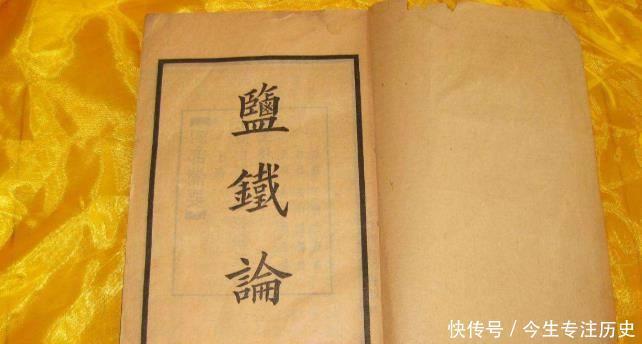 鹽鐵論
快传号 / 今生专注历史